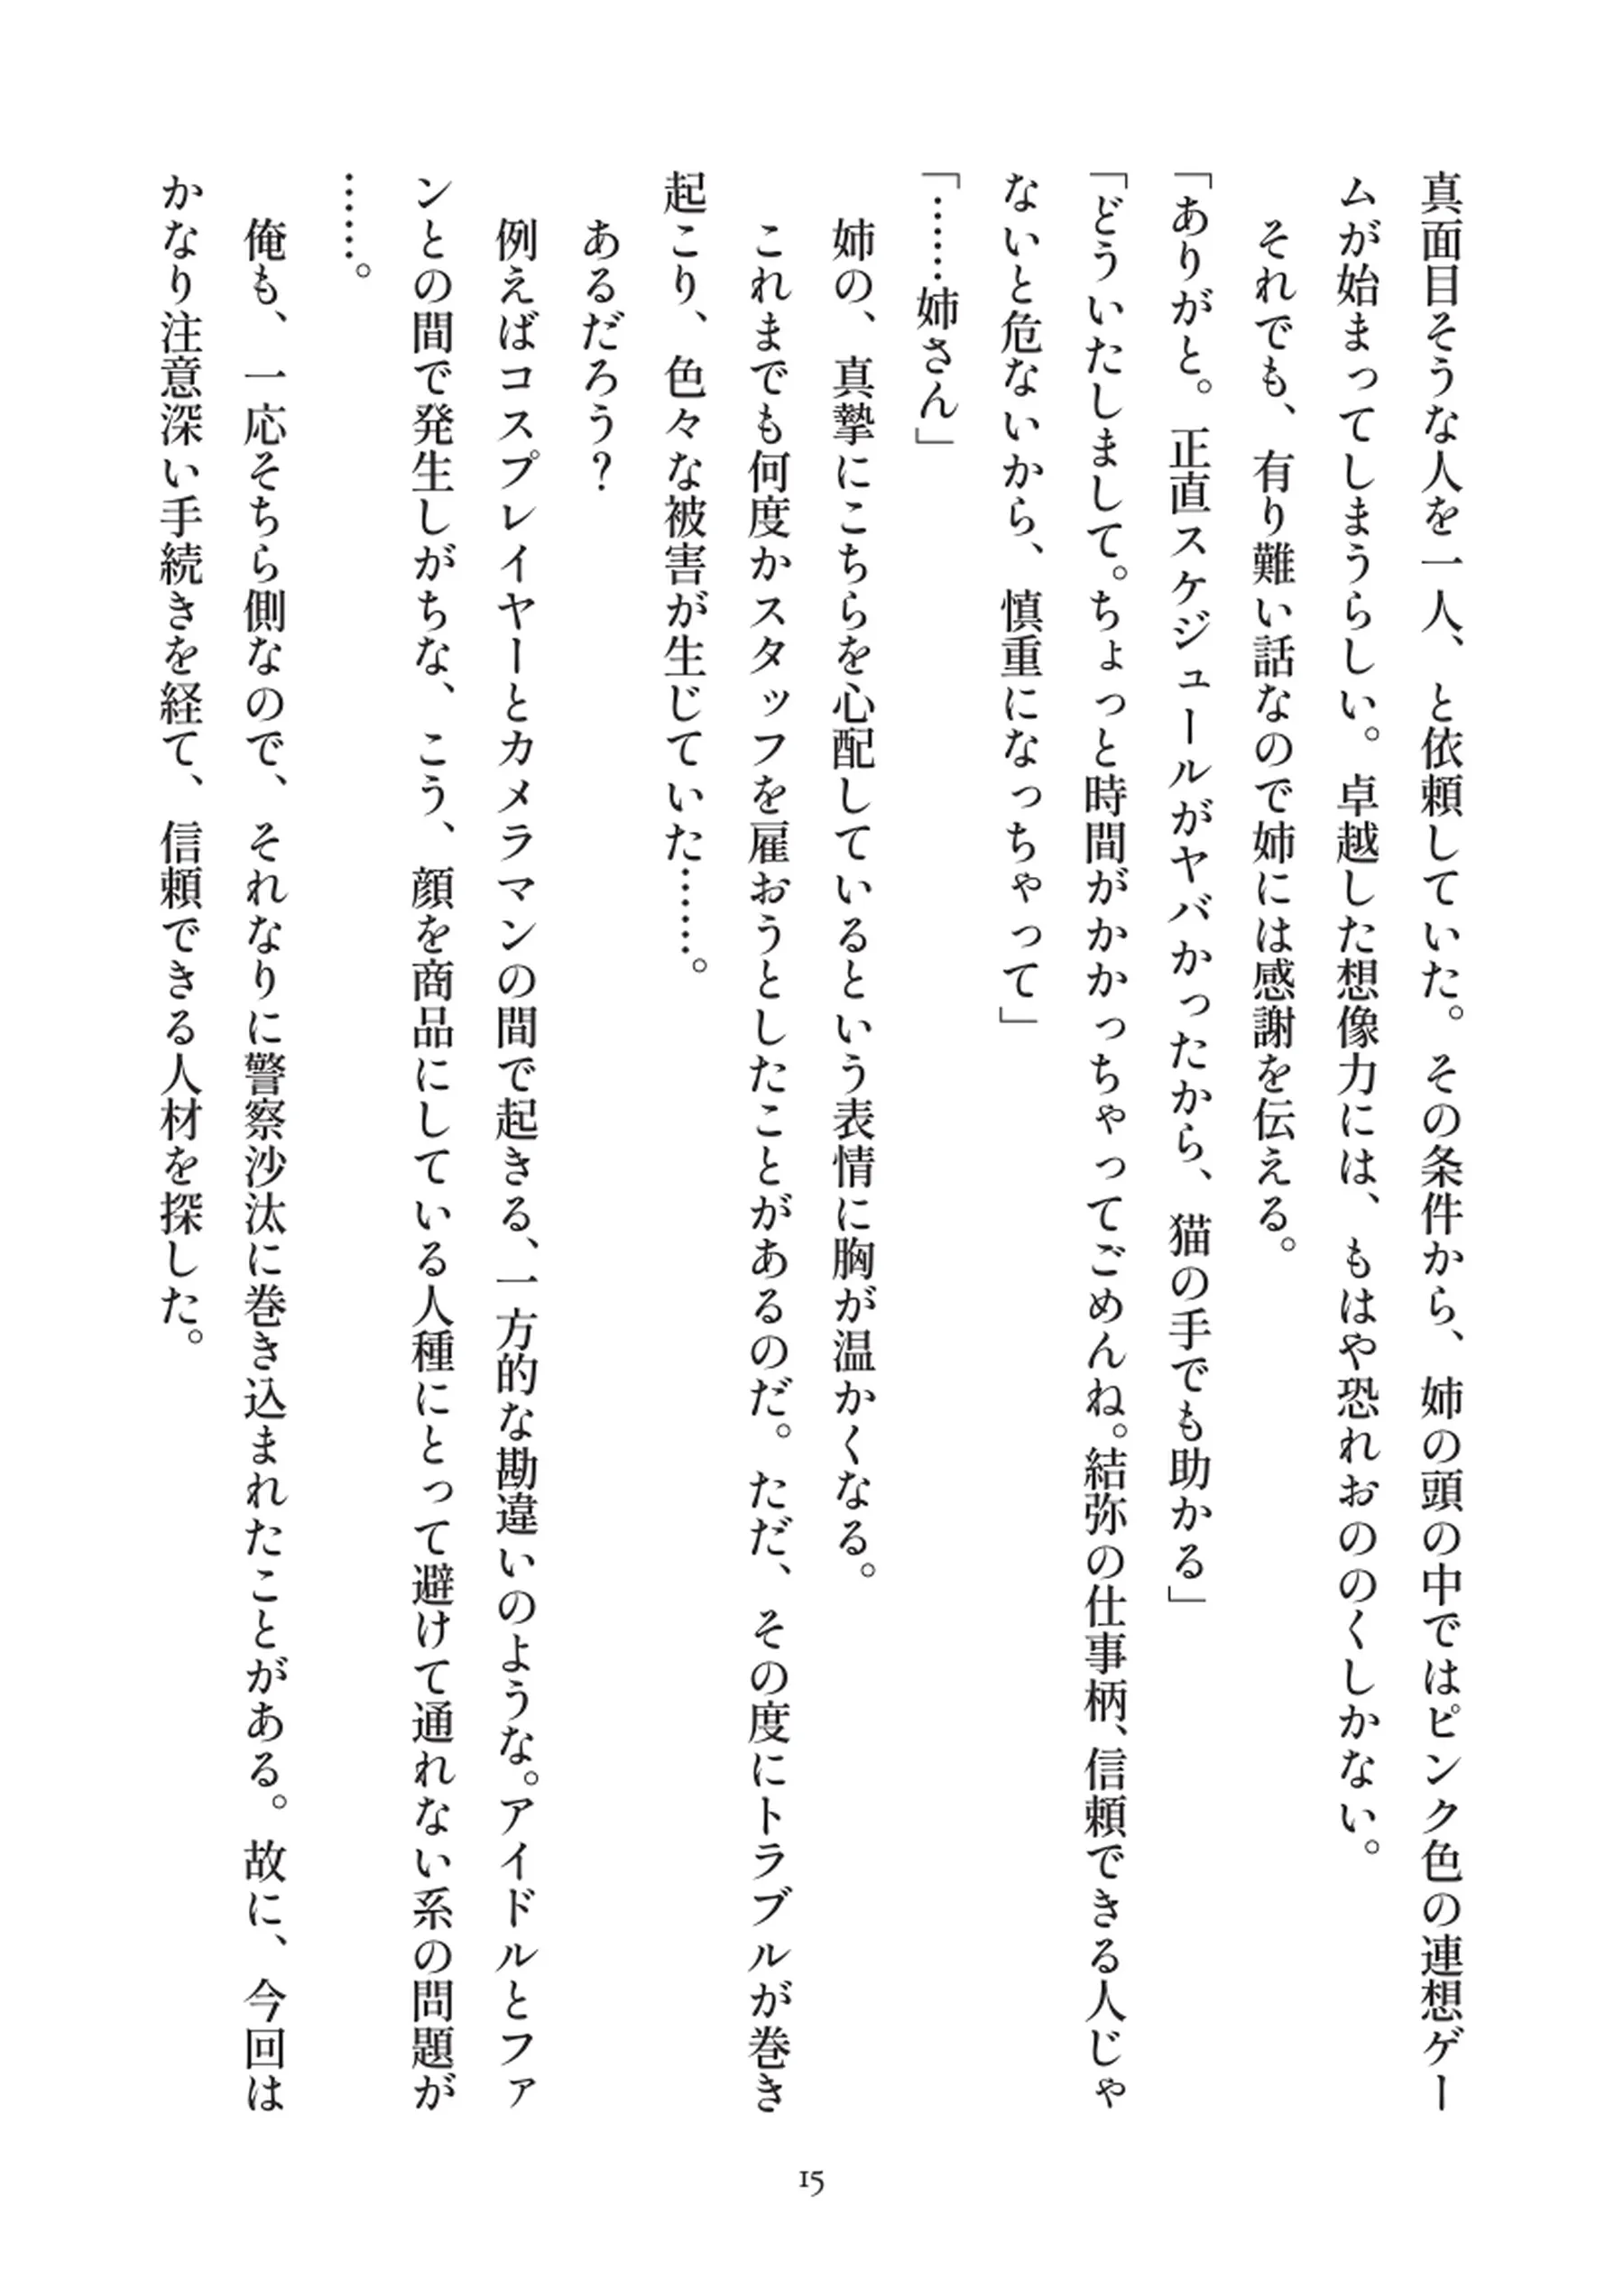 真面目そうな人を一人、と依頼していた。その条件から、姉の頭の中ではピンク色の連想ゲー
ムが始まってしまうらしい。卓越した想像力には、もはや恐れおののくしかない。
それでも、有り難い話なので姉には感謝を伝える。
「ありがと。正直スケジュールがヤバかったから、猫の手でも助かる」
「どういたしまして。ちょっと時間がかかっちゃってごめんね。結弥の仕事柄、信頼できる人じゃ
ないと危ないから、慎重になっちゃって」
「……姉さん」
姉の、真摯にこちらを心配しているという表情に胸が温かくなる。
これまでも何度かスタッフを雇おうとしたことがあるのだ。ただ、その度にトラブルが巻き
起こり、色々な被害が生じていた……。
あるだろう？
例えばコスプレイヤーとカメラマンの間で起きる、一方的な勘違いのような。アイドルとファ
ンとの間で発生しがちな、こう、顔を商品にしている人種にとって避けて通れない系の問題が
……。
俺も、一応そちら側なので、それなりに警察沙汰に巻き込まれたことがある。故に、今回は
かなり注意深い手続きを経て、信頼できる人材を探した。
15